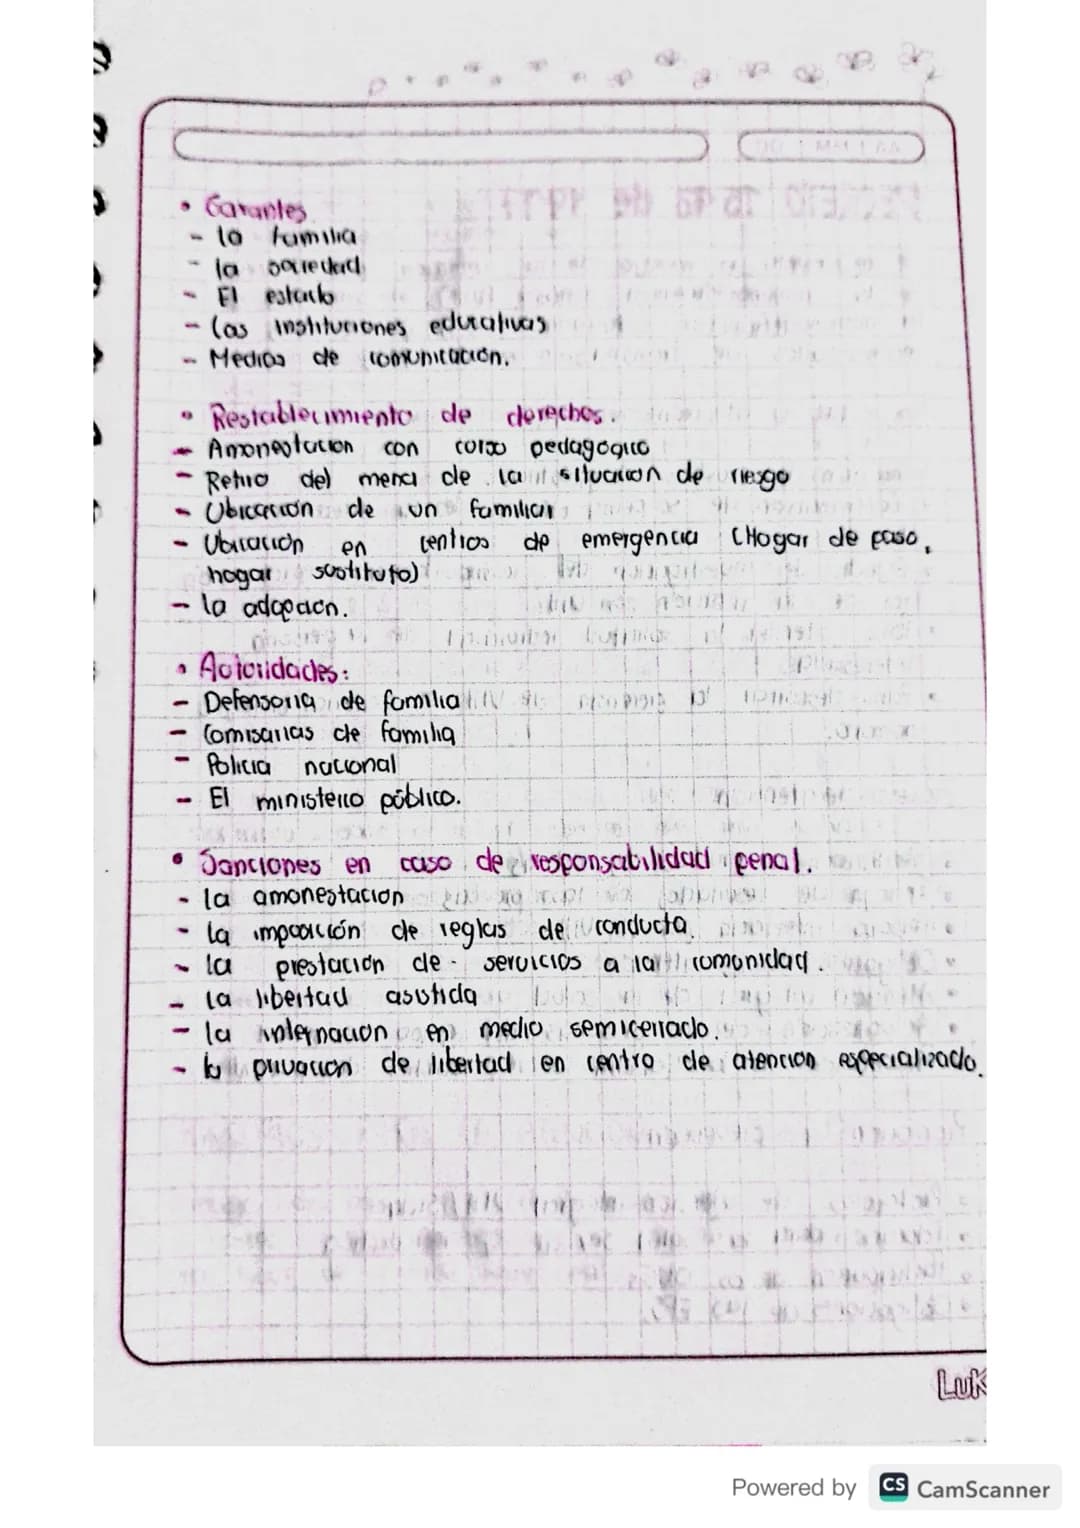 • Garantes
- la familia
- la sociedad
- El estado
- Las instituciones educativas
- Medios de comunicación.
• Restablecimiento de derechos.
- Amonestacion con curso pedagogico
- Retiro del menor de la situacion de riesgo
- Ubicación de un familiar
- Ubicación en centros de emergencia (Hogar de paso,
hogar sustituto)
- la adopcion.
• Autoridades:
- Defensoria de familia
- Comisarias de familia
- Policia nacional
- El ministerio público.
• Sanciones en caso de responsabilidad penal.
- la amonestacion
- La imposición de reglas de conducta
- la prestación de servicios a la comunidad.
- la libertad asistida
- la internacion en medio semicerrado.
- la privacion de libertad en centro de atencion especializado.
Luk
Powered by CS CamScanner